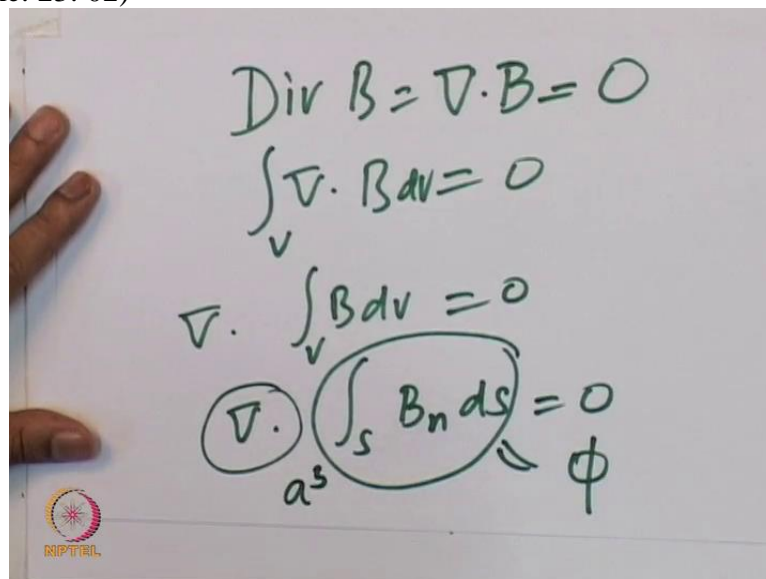 Div B = ∇·B = 0
∫_V ∇·B dv = 0
∇· ∫_V B dv = 0
∇· ∫_S B_n ds = 0
a³ ϕ
NPTEL